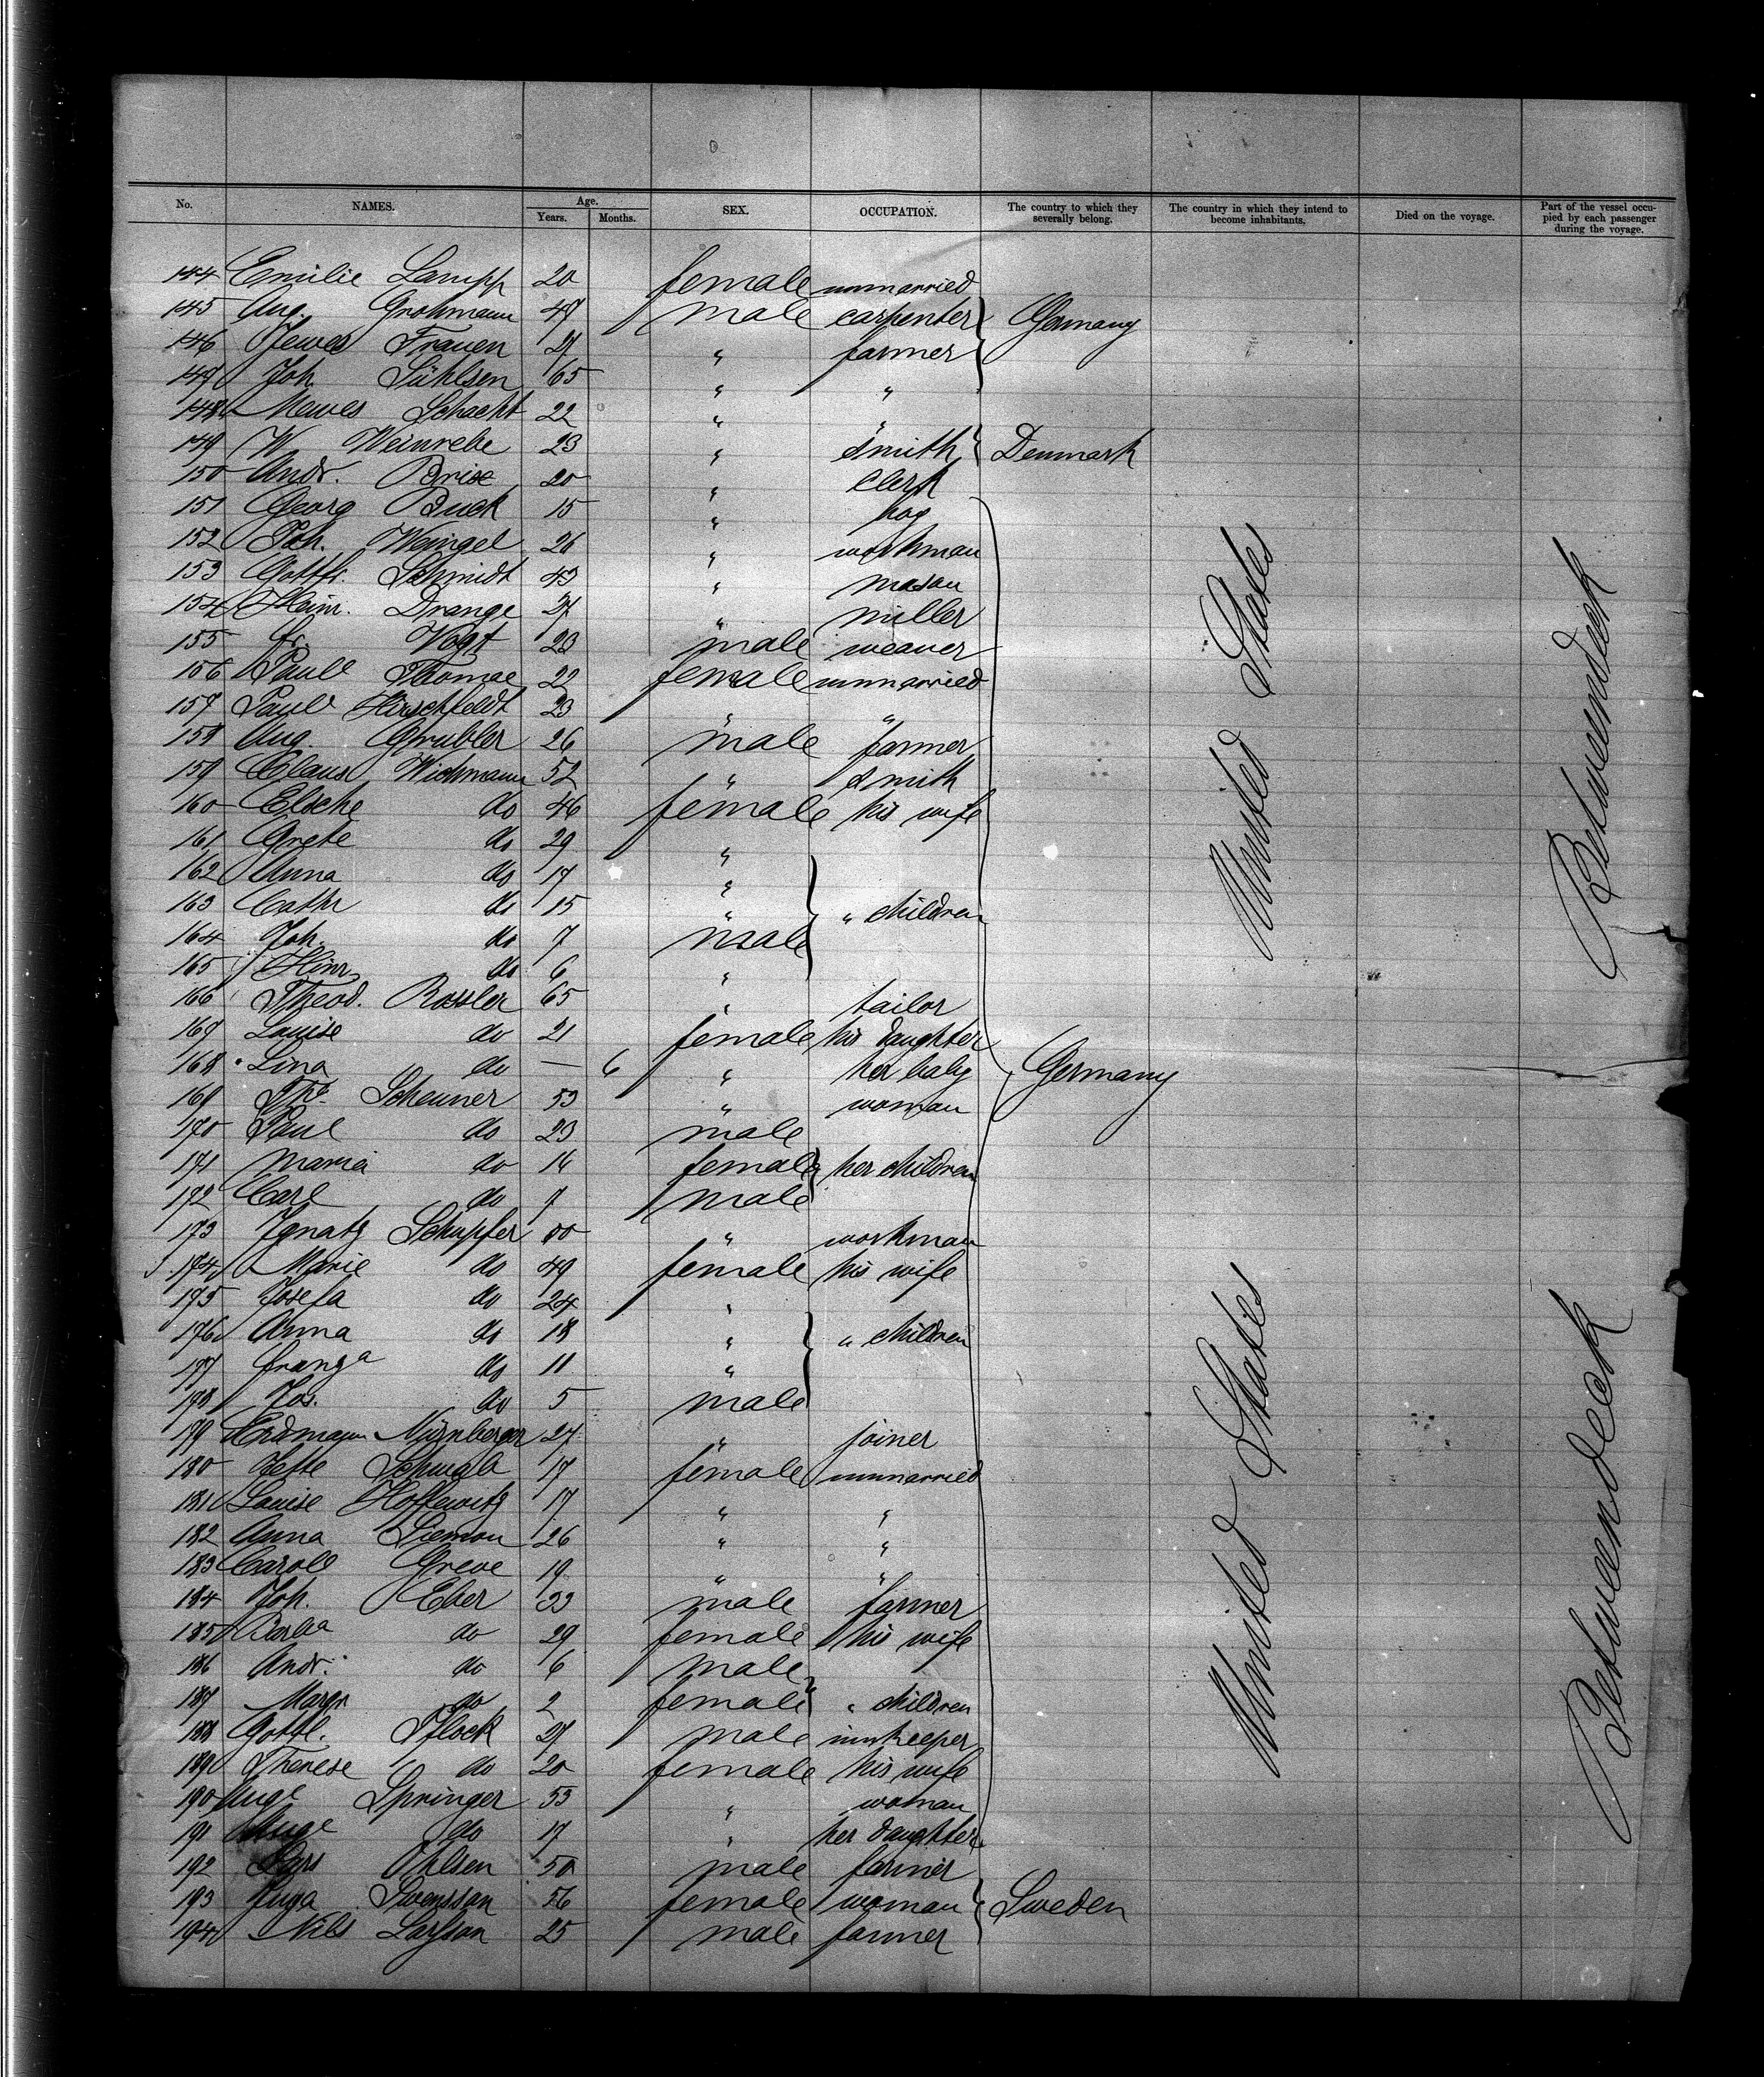 No. NAMES. Age. Years. Months. SEX. OCCUPATION. The country to which they severally belong. The country in which they intend to become inhabitants. Died on the voyage. Part of the vessel occupied by each passenger during the voyage.
144 Emilie Lampp 20 female unmarried
145 Aug. Grohmann 47 male carpenter Germany
146 Jewes Frauen 27 " farmer
147 Joh. Sühlsen 65 " "
148 Mewes Schacht 22 " "
149 W Weinrebe 23 " smith Denmark
150 Andr. Brise 20 " clerk
151 Georg Buck 15 " boy
152 Joh. Weingel 26 " workman
153 Gottfr. Schmidt 43 " mason
154 Heinr. Drange 27 " miller
155 Fr. Vogt 23 male weaver
156 Paul Thomae 22 female unmarried
157 Paul Hirschfeldt 23 " "
158 Aug. Grubler 26 male farmer
159 Claus Wichmann 52 " smith
160 Elsche do 46 female his wife
161 Grete do 29 "
162 Anna do 17 "
163 Cath do 15 " " children
164 Joh. do 7 male
165 Hinr. do 6 "
166 Theod. Rossler 65 " tailor
167 Louise do 21 female his daughter
168 Lina do — 6 " her baby Germany
169 Scheuner 53 " woman
170 Paul do 23 male
171 Maria do 16 female her children
172 Carl do 7 male
173 Ignatz Schupfer " workman
174 Marie do 49 female his wife
175 Josefa do 24 "
176 Anna do 18 " " children
177 Franza do 11 "
178 Jos. do 5 male
179 Erdmann Nürnberger 27 " joiner
180 Jette Schwalb 17 female unmarried
181 Louise Hoffewitz 17 " "
182 Anna Siemon 26 " "
183 Carol Greve 19 " "
184 Joh. Eber 33 male farmer
185 Barba do 29 female his wife
186 Andr. do 6 male
187 Margr do 2 female " children
188 Gottl. Flock 27 male innkeeper
189 Therese do 20 female his wife
190 Auge Springer 53 " woman
191 Auge do 17 " her daughter
192 Lars Ohlsen 50 male farmer
193 Inga Swensson 56 female woman Sweden
194 Nils Larsson 25 male farmer
United States
Betweendeck
United States
Betweendeck